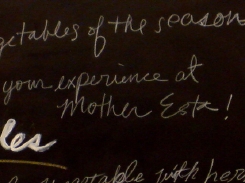 getables of the season
your experience at
Mother Esta!
les
vegetable with her